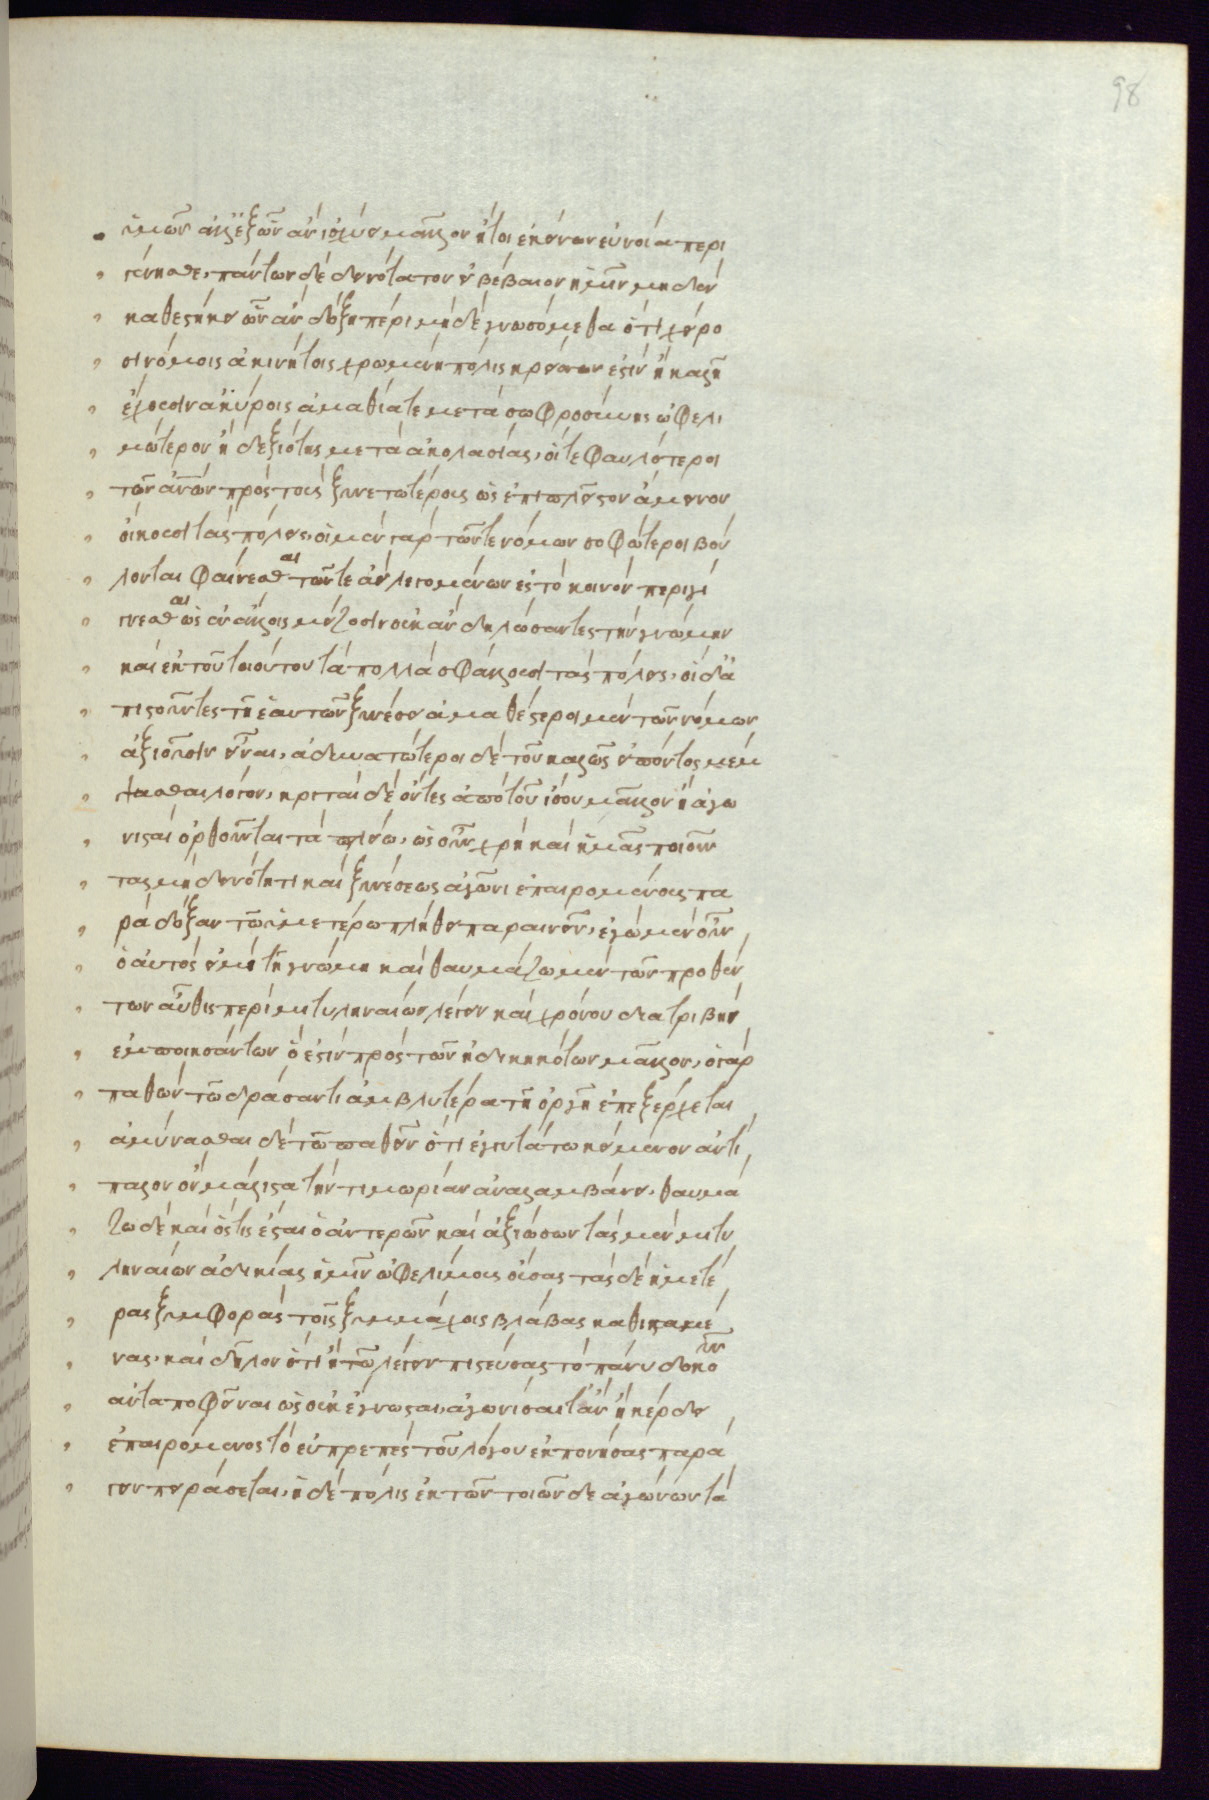 98
ὑμῶν ἀλλ' ἐξ ὧν ἂν ἰσχύϊ μᾶλλον ἢ τῆι ἐκείνων εὐνοίᾳ περι
γένησθε, πάντων δὲ δεινότατον εἰ βέβαιον ἡμῖν μηδὲν
καθεστήκει ὧν ἂν δόξῃ πέρι μὴ δὲ γνωσόμεθα ὅτι χείρο
σι νόμοις ἀκινήτοις χρωμένη πόλις κρείσσων ἐστὶν ἢ καλῶς
ἔχουσιν ἀκύροις ἀμαθία τε μετὰ σωφροσύνης ὠφελι
μώτερον ἢ δεξιότης μετὰ ἀκολασίας, οἵ τε φαυλότεροι
τῶν ἀν(θρώπ)ων πρὸς τοὺς ξυνετωτέρους ὡς ἐπιπλεῖστον ἄμεινον
οἰκοῦσι τὰς πόλεις, οἱ μὲν γὰρ τῶν τε νόμων σοφώτεροι βού
λονται φαίνεσθαι τῶν τε ἀεὶ λεγομένων ἐς τὸ κοινὸν περιγί
γνεσθαι ὡς ἐν ἄλλοις μείζοσιν οὐκ ἂν δηλώσαντες τὴν γνώμην
καὶ ἐκ τοῦ τοιούτου τὰ πολλὰ σφάλλουσι τὰς πόλεις, οἱ δ' ἀ
πιστοῦντες τῇ ἑαυτῶν ξυνέσει ἀμαθέστεροι μὲν τῶν νόμων
ἀξιοῦσιν εἶναι, ἀδυνατώτεροι δὲ τοῦ καλῶς εἰπόντος μέμ
ψασθαι λόγον, κριταὶ δὲ ὄντες ἀπὸ τοῦ ἴσου μᾶλλον ἢ ἀγω
νισταὶ ὀρθοῦνται τὰ πλείω, ὡς οὖν χρὴ καὶ ἡμᾶς ποιοῦν
τας μὴ δεινότητι καὶ ξυνέσεως ἀγῶνι ἐπαιρομένους πα
ρὰ δόξαν τῷ ὑμετέρῳ πλήθει παραινεῖν, ἐγὼ μὲν οὖν
ὁ αὐτός εἰμι τῇ γνώμῃ καὶ θαυμάζω μὲν τῶν προθέν
των αὖθις περὶ μιτυληναίων λέγειν καὶ χρόνου διατριβὴν
ἐμποιησάντων ὅ ἐστι πρὸς τῶν ἠδικηκότων μᾶλλον, ὁ γὰρ
παθὼν τῷ δράσαντι ἀμβλυτέρᾳ τῇ ὀργῇ ἐπεξέρχεται
ἀμύνασθαι δὲ τῷ παθεῖν ὅτι ἐγγυτάτω κείμενον ἀντί
παλον ὂν μάλιστα τὴν τιμωρίαν ἀναλαμβάνει, θαυμά
ζω δὲ καὶ ὅστις ἔσται ὁ ἀντερῶν καὶ ἀξιώσων τὰς μὲν μιτυ
ληναίων ἀδικίας ἡμῖν ὠφελίμους οὔσας τὰς δὲ ἡμετέ
ρας ξυμφορὰς τοῖς ξυμμάχοις βλάβας καθισταμέ
νας, καὶ δῆλον ὅτι ἢ τῷ λέγειν πιστεύσας τὸ πάνυ δοκοῦν
ἀνταποφῆναι ὡς οὐκ ἔγνωσται, ἀγωνίσαιτ' ἂν ἢ κέρδει
ἐπαιρόμενος τὸ εὐπρεπὲς τοῦ λόγου ἐκπονήσας παρά
γειν πειράσεται, ἡ δὲ πόλις ἐκ τῶν τοιῶνδε ἀγώνων τὰ